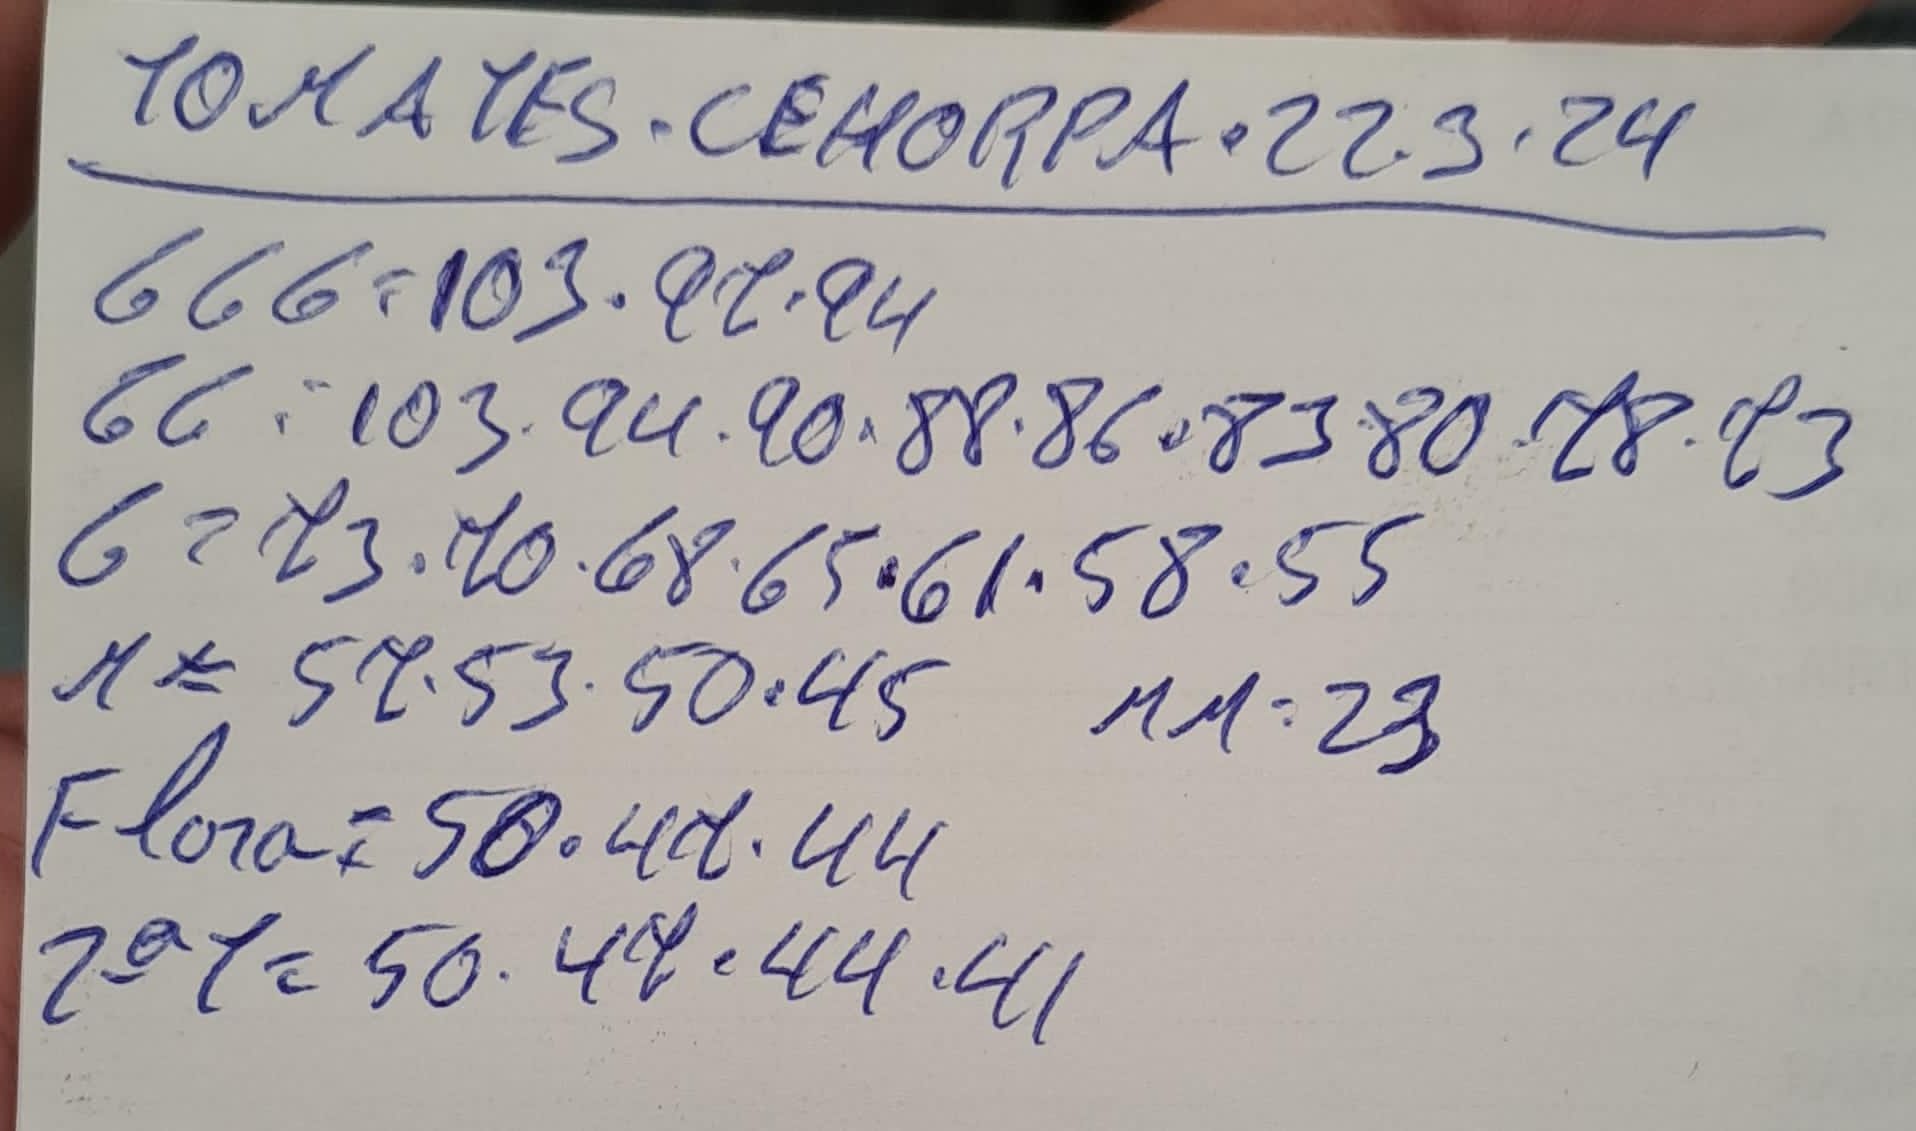 TOMATES.CEHORPA.22.3.24
GGG=103.97.94
GG=103.94.90.88.86.83.80.78.73
G=73.70.68.65.61.58.55
M=57.53.50.45 MM=23
Flora=50.47.44
2ªT=50.47.44.41